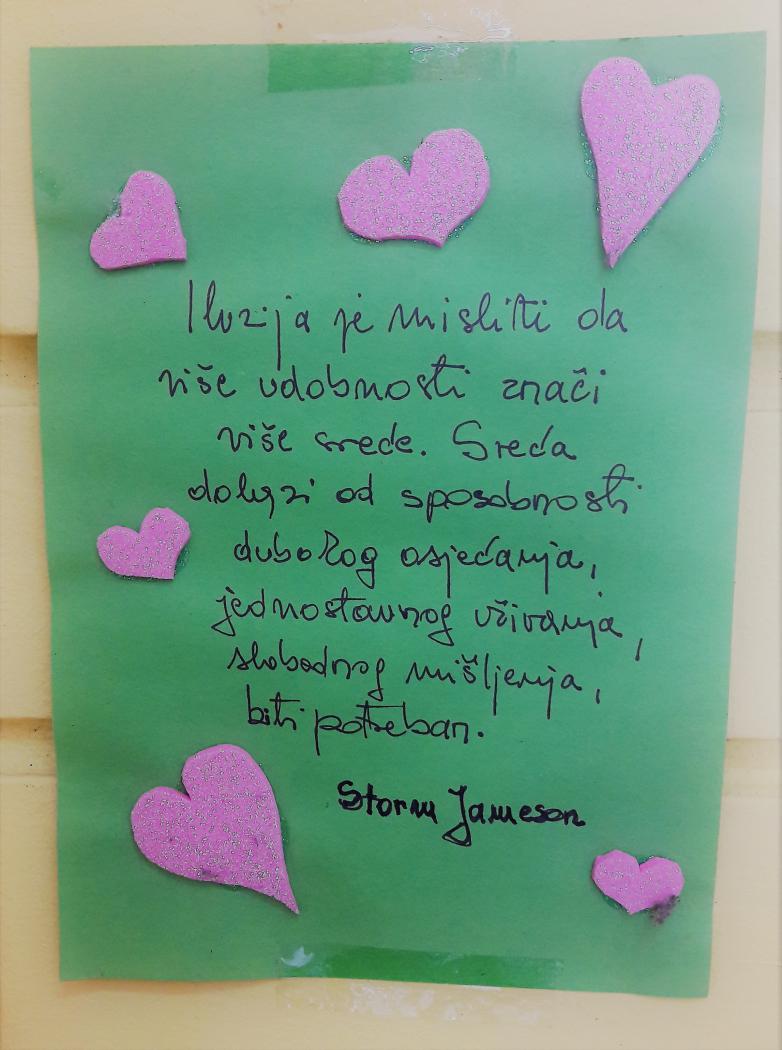 Iluzija je misliti da
više udobnosti znači
više sreće. Sreća
dolazi od sposobnosti
dubokog osjećanja,
jednostavnog uživanja,
slobodnog mišljenja,
biti potreban.
Storm Jameson